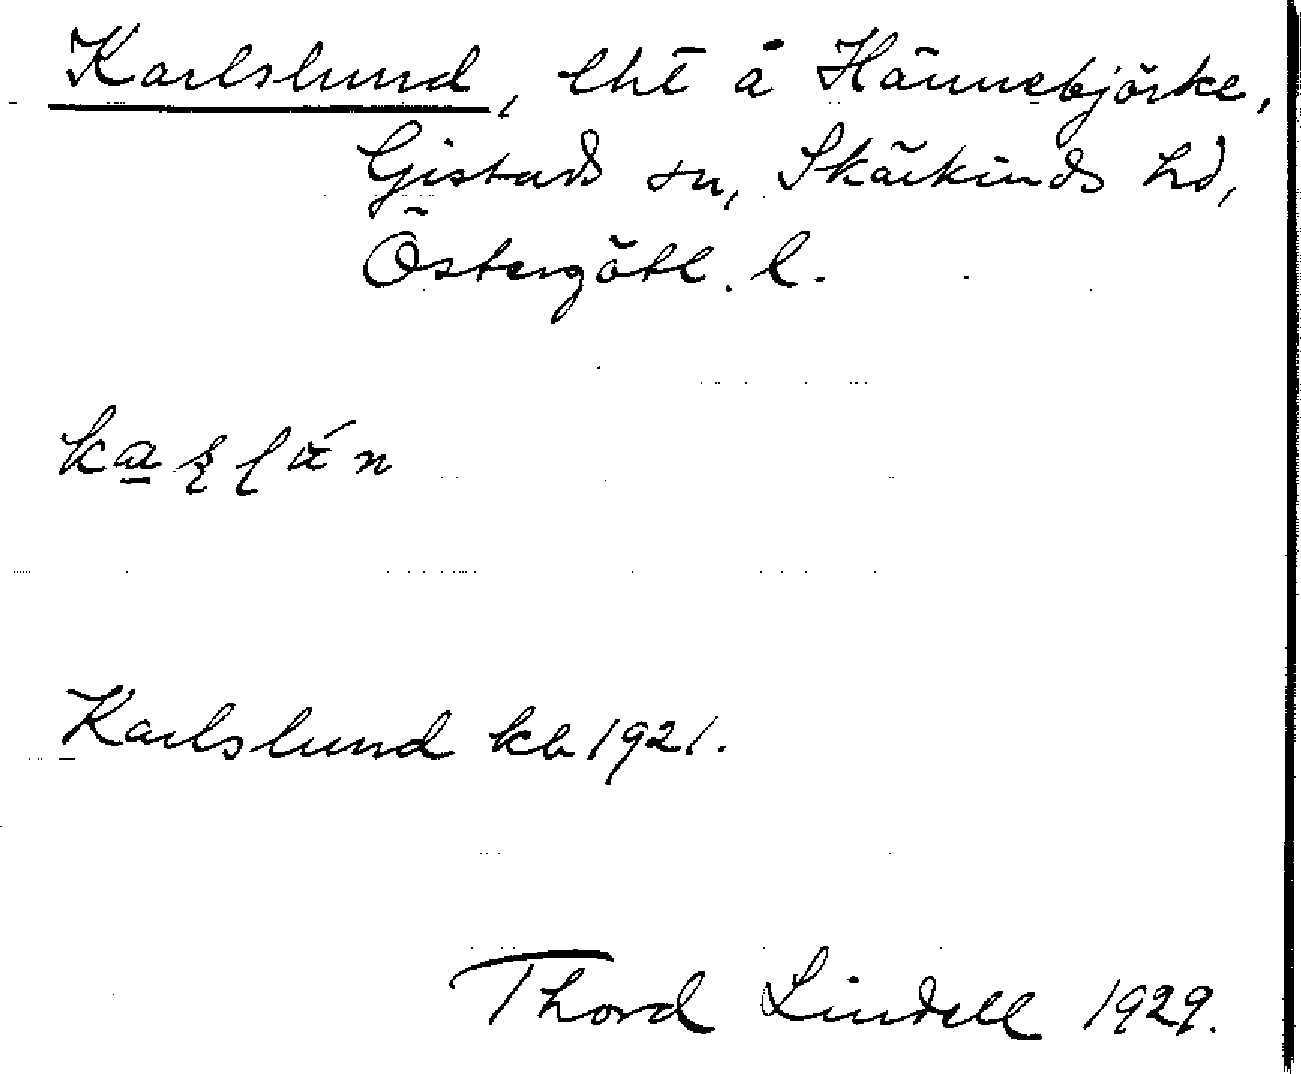 Karlslund, lht å Hännebjörke,
Gistads sn, Skärkinds hd,
Östergötl. l.
Karlslund kb 1921.
Thord Lindell 1929.